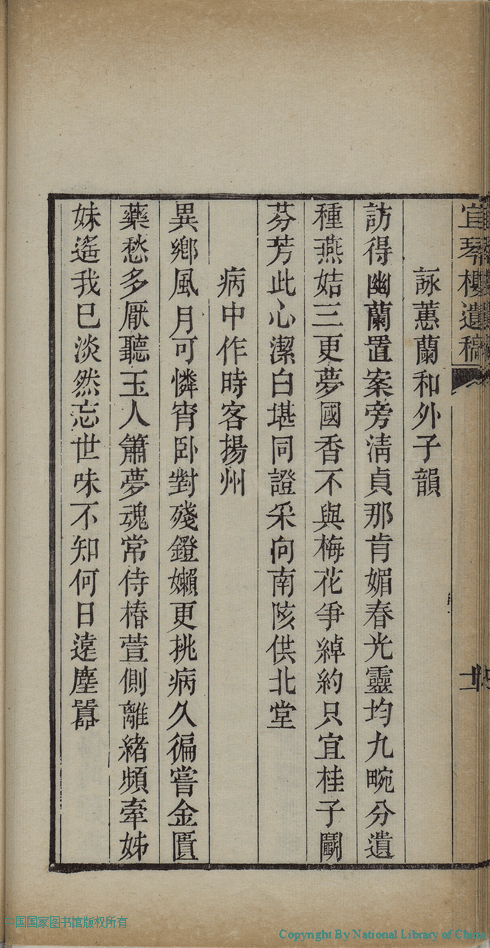 宜琴樓遺稿
詠蕙蘭和外子韻
訪得幽蘭置案旁淸貞那肯媚春光靈均九畹分遺
種燕姞三更夢國香不與梅花爭綽約只宜桂子鬭
芬芳此心潔白堪同證采向南陔供北堂
病中作時客揚州
異鄉風月可憐宵臥對殘鐙嬾更挑病久徧嘗金匱
藥愁多厭聽玉人簫夢魂常侍椿萱側離緒頻牽姊
妹遙我已淡然忘世味不知何日遠塵囂
中国国家图书馆版权所有
Copyright By National Library of China